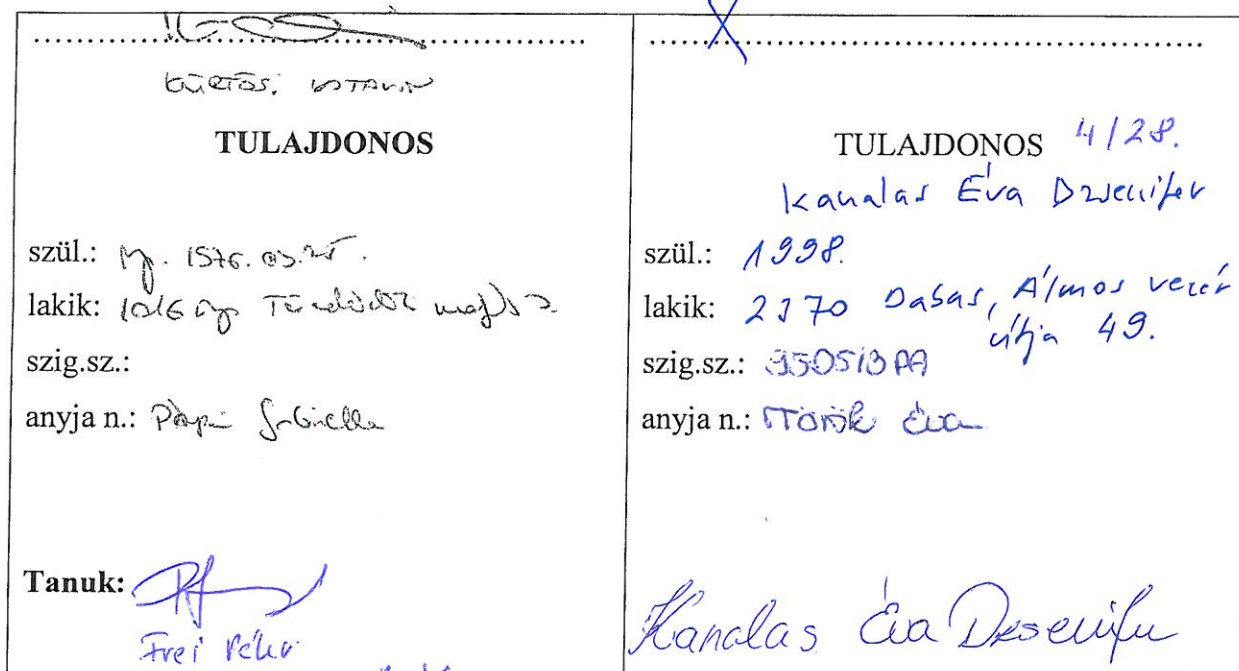 TULAJDONOS
szül.: 1976. 03. 25.
lakik: 1016
szig.sz.:
anyja n.: Gabriella
Tanuk:
Frei Péter
TULAJDONOS 4/28.
Kanalas Éva Dzsenifer
szül.: 1998.
lakik: 2370 Dabas, Álmos vezér
útja 49.
szig.sz.: 950513AA
anyja n.: Török Éva
Kanalas Éva Dzsenifer